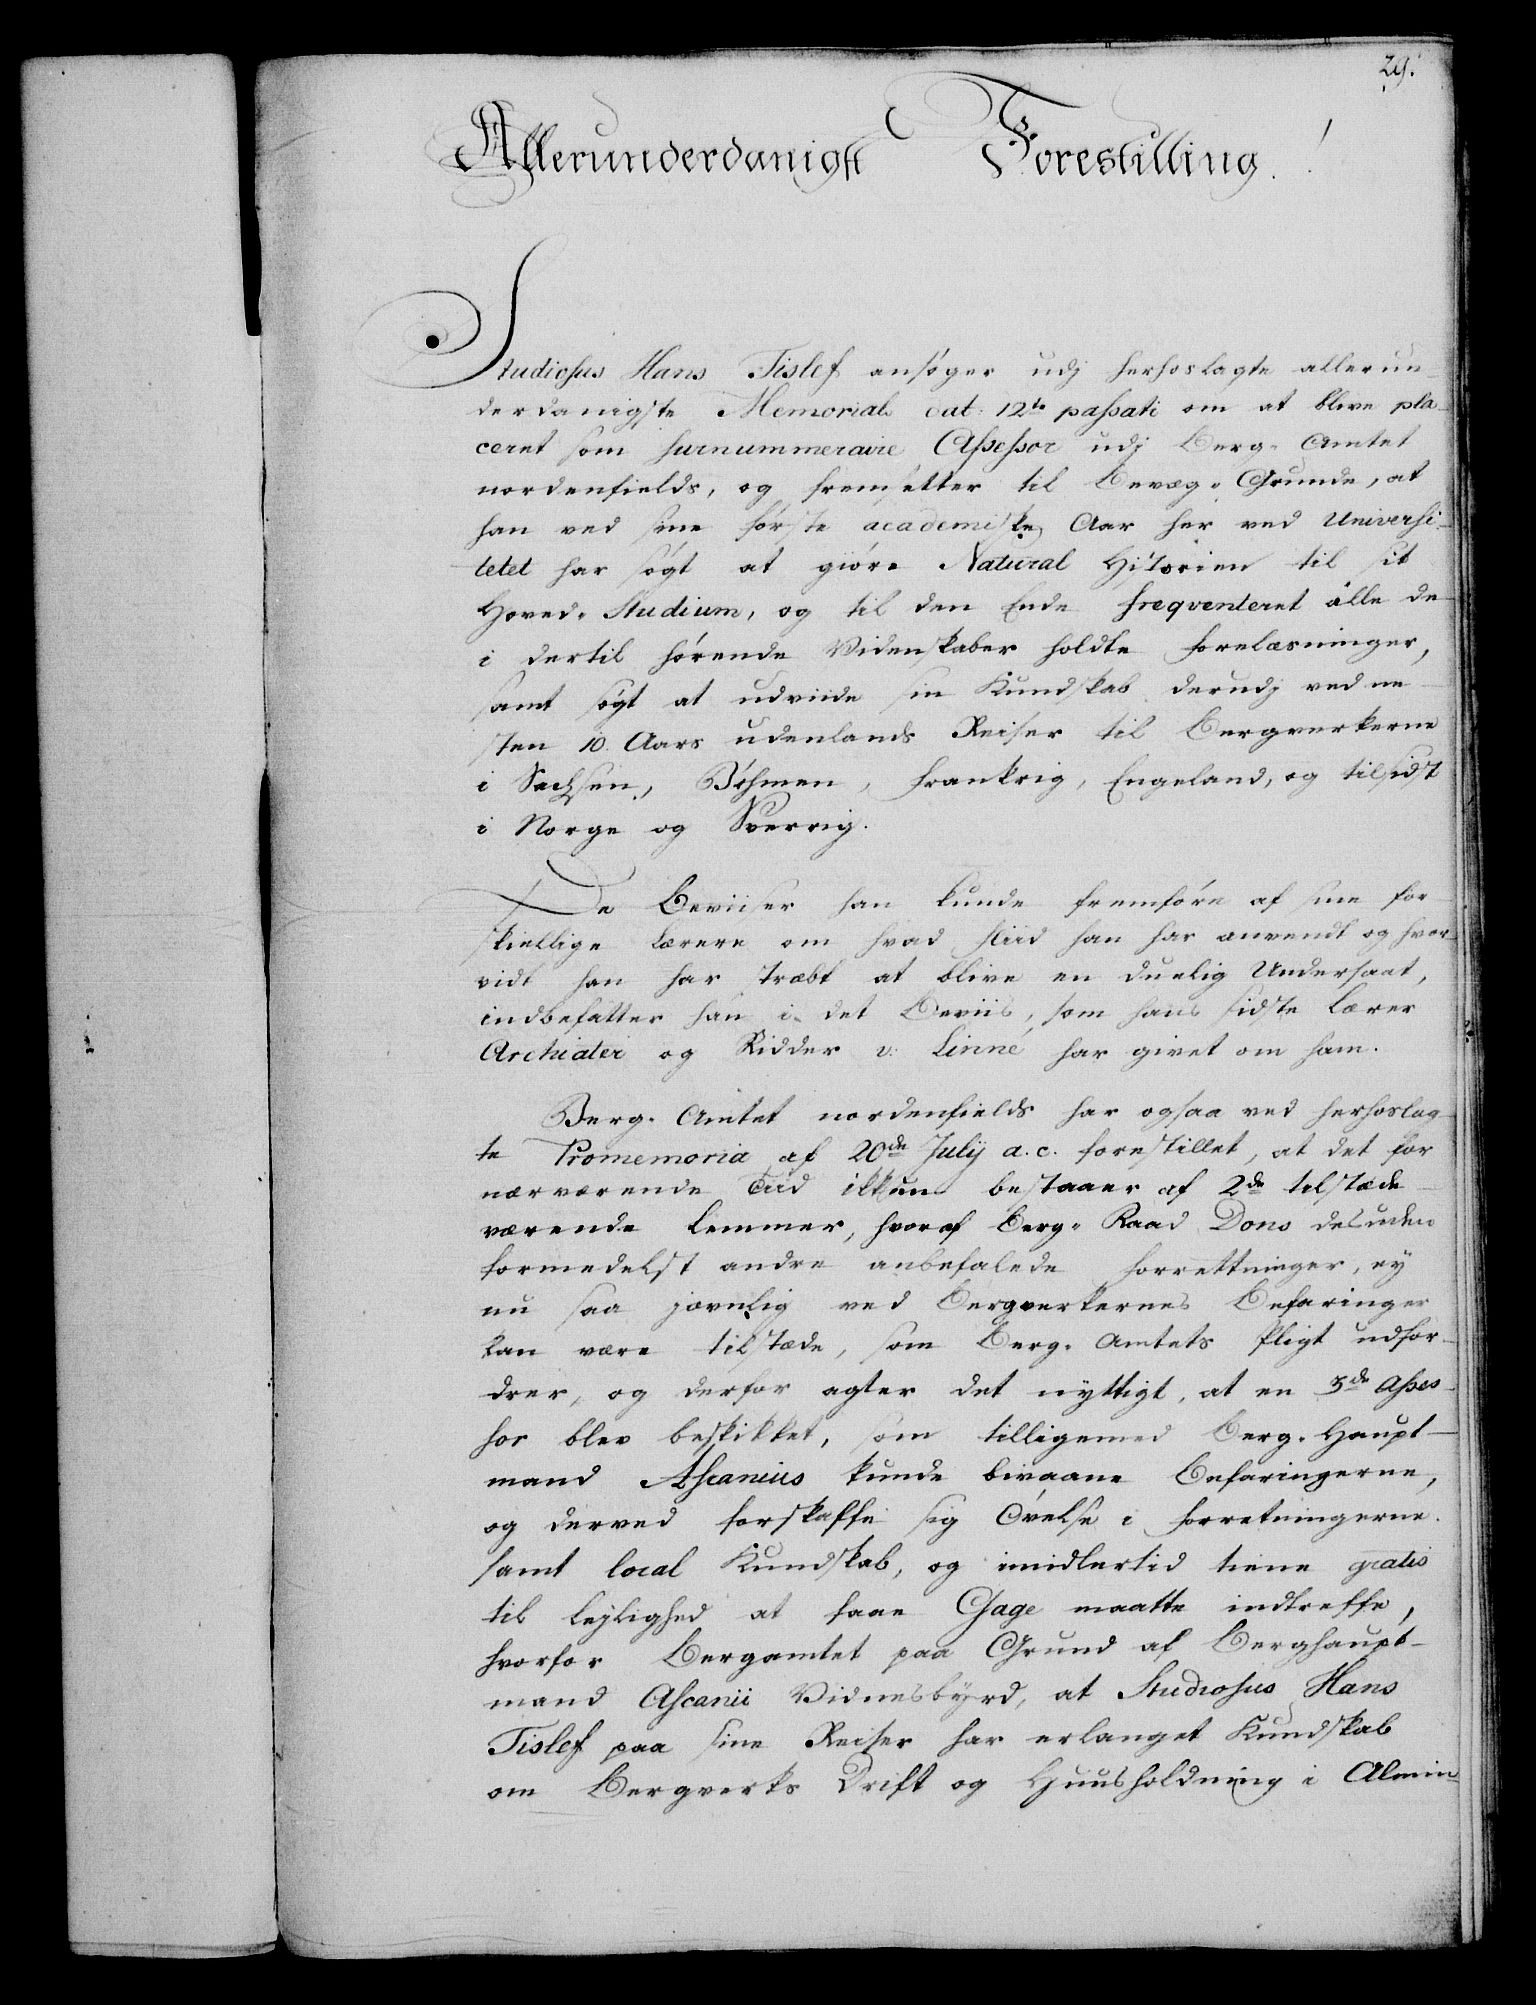 29.
Allerunderdanigst Forestilling.
Studiosus Hans Tislef ansøger udj herhoslagte allerun-
derdanigste Memorial dat: 12te passati om at blive pla-
ceret som surnummeraire Assessor udj Berg-Amtet
nordenfields, og fremsetter til Bevæg-Grunde, at
han ved sine første academiske Aar her ved Universi-
tetet har søgt at giøre Natural Historien til sit
Hoved-Studium, og til den Ende freqventeret alle de
i dertil hørende Videnskaber holdte Forelæsninger,
samt søgt at udviide sin Kundskab derudj ved ne-
sten 10. Aars udenlands Reiser til Bergverkerne
i Sachsen, Bøhmen, Frankrig, Engeland, og tilsidst
i Norge og Sverrig.
De Beviiser han kunde fremføre af sine for-
skiellige Lærere om hvad Fliid han har anvendt og hvor-
vidt han har stræbt at blive en duelig Undersaat,
indbefatter han i det Beviis, som hans sidste Lærer
Archiater og Ridder v: Linné har givet om ham.
Berg-Amtet nordenfields har ogsaa ved herhoslag-
te Promemoria af 20de Julij a. c. forestillet, at det for
nærværende Tiid ikkun bestaaer af 2de tilstæde-
værende Lemmer, hvoraf Berg-Raad Dons desuden
formedelst andre anbefalede Forrettninger, ey
nu saa jævnlig ved Bergverkernes Befaringer
kan være tilstæde, som Berg-Amtets Pligt udfor-
drer, og derfor agter det nyttigt, at en 3de Asses-
sor blev beskikket, som tilligemed Berg-Haupt-
mand Ascanius kunde bivaane Befaringerne,
og derved forskaffe sig Øvelse i Forretningerne
samt local Kundskab, og imidlertid tiene gratis
til Lejlighed at faae Gage maatte indtreffe,
hvorfor Bergamtet paa Grund af Berghaupt-
mand Ascanii Vidnesbyrd, at Studiosus Hans
Tislef paa sine Reiser har erlanget Kundskab
om Bergverks Drift og Huusholdning i Almin-